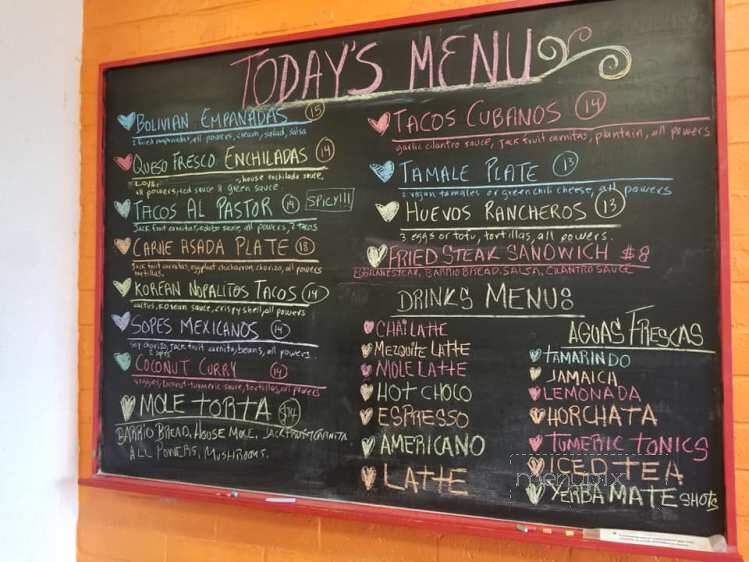 TODAY'S MENU
BOLIVIAN EMPANADAS 15
2 fried empanadas, all powers, cream, salad, salsa
QUESO FRESCO ENCHILADAS 14
house enchilada sauce,
all powers, red sauce & green sauce
TACOS AL PASTOR 14 SPICY!!!
Jack fruit carnitas, adobo sauce, all powers, 2 tacos
CARNE ASADA PLATE 18
Jack fruit carnitas, eggplant chicharron, chorizo, all powers
tortillas.
KOREAN NOPALITOS TACOS 14
cactus, Korean sauce, crispy shell, all powers
SOPES MEXICANOS 14
soy chorizo, Jack fruit carnita, beans, all powers
2 sopes
COCONUT CURRY 14
veggies, coconut-turmeric sauce, tortillas, all powers
MOLE TORTA $14
BARRIO BREAD, HOUSE MOLE, JACKFRUIT CARNITA
ALL POWERS, MUSHROOMS.
TACOS CUBANOS 14
garlic cilantro sauce, Jack fruit carnitas, plantain, all powers
TAMALE PLATE 13
2 vegan tamales or green chili cheese, all powers
HUEVOS RANCHEROS 13
3 eggs or tofu, tortillas, all powers.
FRIED STEAK SANDWICH #8
EGGPLANT STEAK, BARRIO BREAD, SALSA, CILANTRO SAUCE
DRINKS MENUS
CHAI LATTE
MEZQUITE LATTE
MOLE LATTE
HOT CHOCO
ESPRESSO
AMERICANO
LATTE
AGUAS FRESCAS
TAMARINDO
JAMAICA
LEMONADA
HORCHATA
TUMERIC TONICS
ICED TEA
YERBA MATE SHOTS
menupix